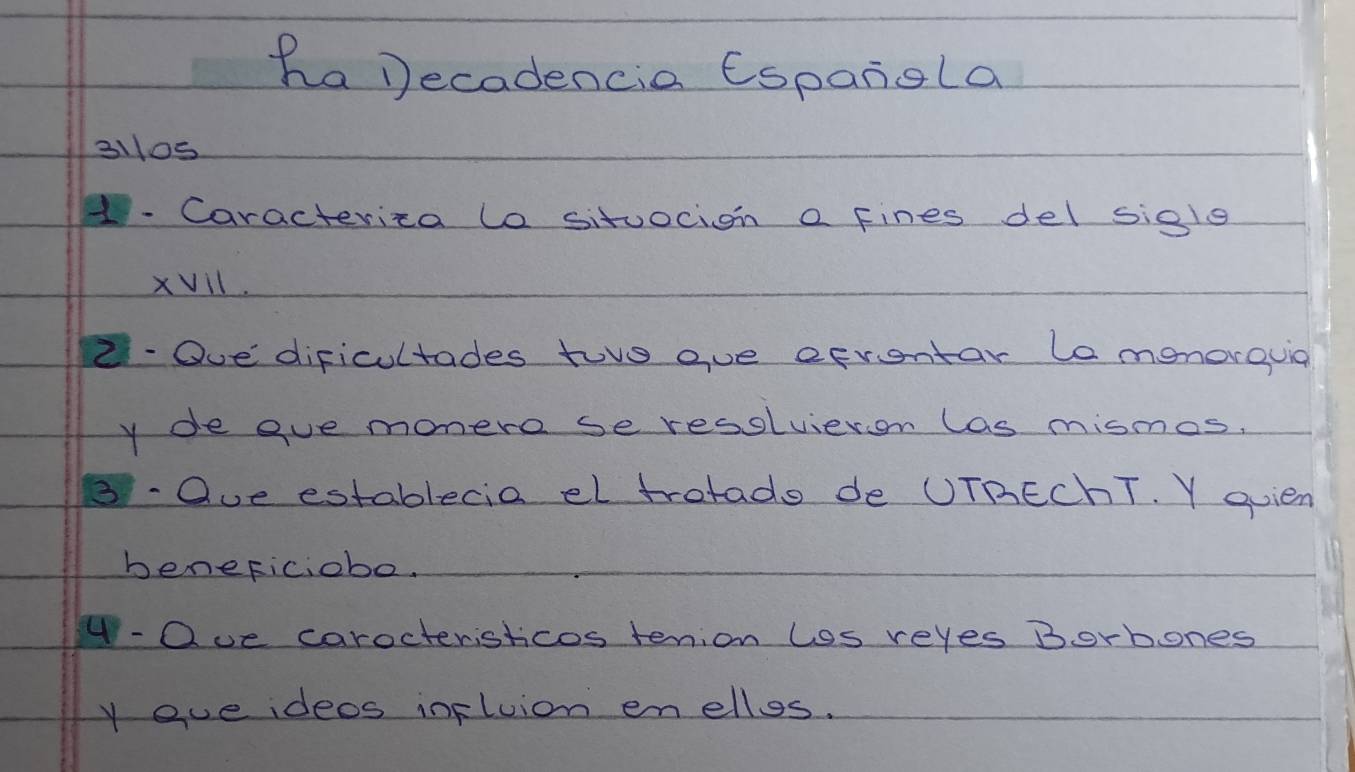 La Decadencia Española
31/05
1 - Caracteriza la situación a fines del siglo
XVII.
2 - Qué dificultades tuvo que afrontar la monarquia
y de que manera se resolvieron las mismas.
3 - Que establecia el tratado de UTREChT. Y quien
beneficiaba.
4 - Que caracteristicas tenian los reyes Borbones
y que ideas influian en ellos.